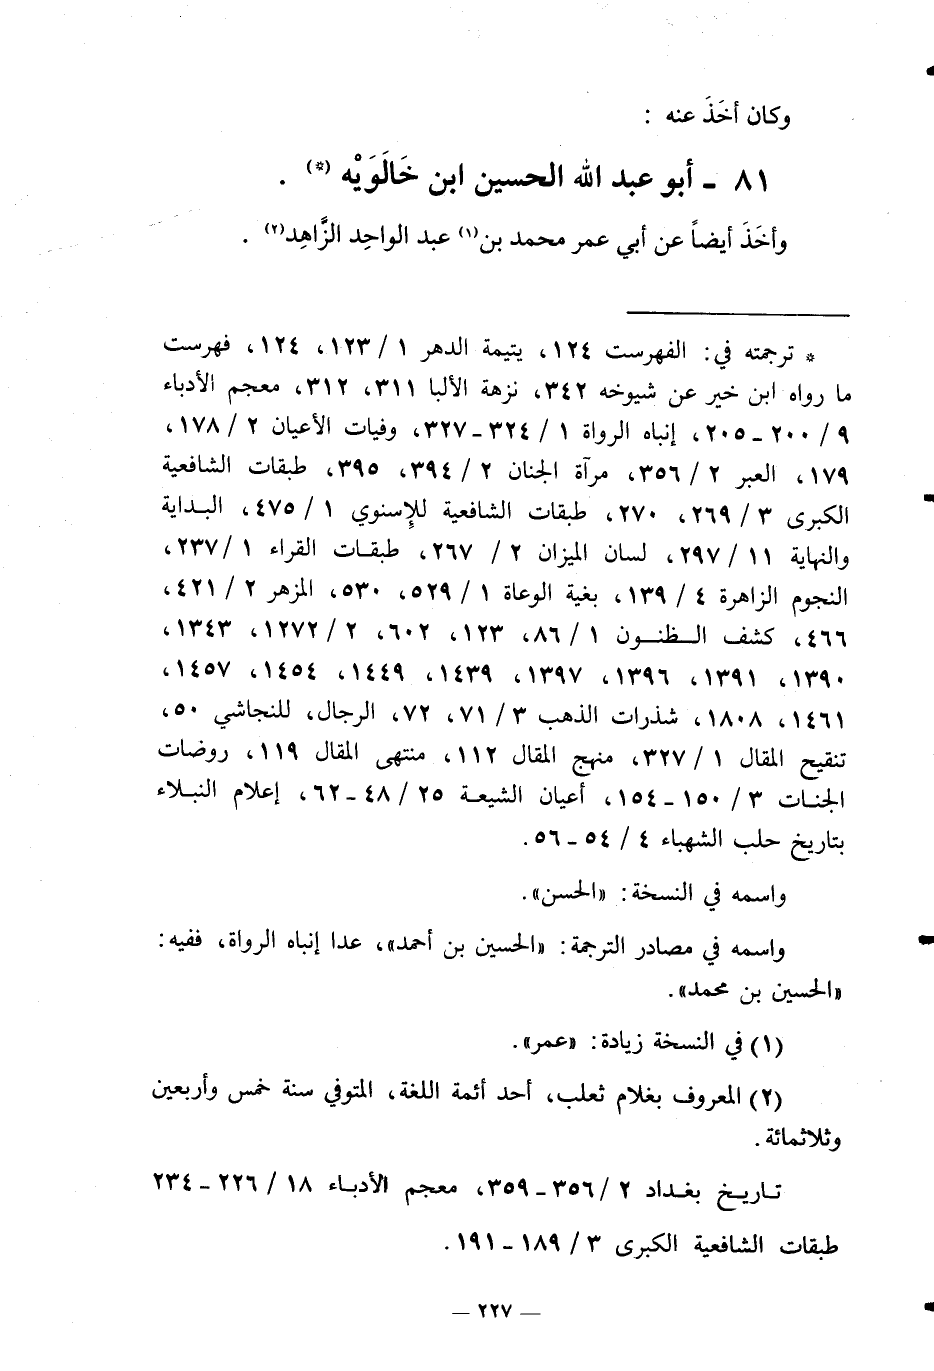 وكان أخَذَ عنه :
٨١ ـ أبو عبد الله الحسين ابن خَالَوَيْه (*) .
وأخَذَ أيضاً عن أبي عمر محمد بن(١) عبد الواحِد الزَّاهِد(٢) .
* ترجمته في: الفهرست ١٢٤، يتيمة الدهر ١ / ١٢٣، ١٢٤، فهرست
ما رواه ابن خير عن شيوخه ٣٤٢، نزهة الألبا ٣١١، ٣١٢، معجم الأدباء
٩ / ٢٠٠ ـ ٢٠٥، إنباه الرواة ١ / ٣٢٤ ـ ٣٢٧، وفيات الأعيان ٢ / ١٧٨،
١٧٩، العبر ٢ / ٣٥٦، مرآة الجنان ٢ / ٣٩٤، ٣٩٥، طبقات الشافعية
الكبرى ٣ / ٢٦٩، ٢٧٠، طبقات الشافعية للإسنوي ١ / ٤٧٥، البداية
والنهاية ١١ / ٢٩٧، لسان الميزان ٢ / ٢٦٧، طبقات القراء ١ / ٢٣٧،
النجوم الزاهرة ٤ / ١٣٩، بغية الوعاة ١ / ٥٢٩، ٥٣٠، المزهر ٢ / ٤٢١،
٤٦٦، كشف الظنون ١ / ٨٦، ١٢٣، ٦٠٢، ٢ / ١٢٧٢، ١٣٤٣،
١٣٩٠، ١٣٩١، ١٣٩٦، ١٣٩٧، ١٤٣٩، ١٤٤٩، ١٤٥٤، ١٤٥٧،
١٤٦١، ١٨٠٨، شذرات الذهب ٣ / ٧١، ٧٢، الرجال، للنجاشي ٥٠،
تنقيح المقال ١ / ٣٢٧، منهج المقال ١١٢، منتهى المقال ١١٩، روضات
الجنات ٣ / ١٥٠ ـ ١٥٤، أعيان الشيعة ٢٥ / ٤٨ ـ ٦٢، إعلام النبلاء
بتاريخ حلب الشهباء ٤ / ٥٤ ـ ٥٦.
واسمه في النسخة: «الحسن».
واسمه في مصادر الترجمة: «الحسين بن أحمد»، عدا إنباه الرواة، ففيه:
«الحسين بن محمد».
(١) في النسخة زيادة: «عمر».
(٢) المعروف بغلام ثعلب، أحد أئمة اللغة، المتوفي سنة خمس وأربعين
وثلاثمائة.
تاريخ بغداد ٢ / ٣٥٦ ـ ٣٥٩، معجم الأدباء ١٨ / ٢٢٦ ـ ٢٣٤
طبقات الشافعية الكبرى ٣ / ١٨٩ ـ ١٩١.
— ٢٢٧ —